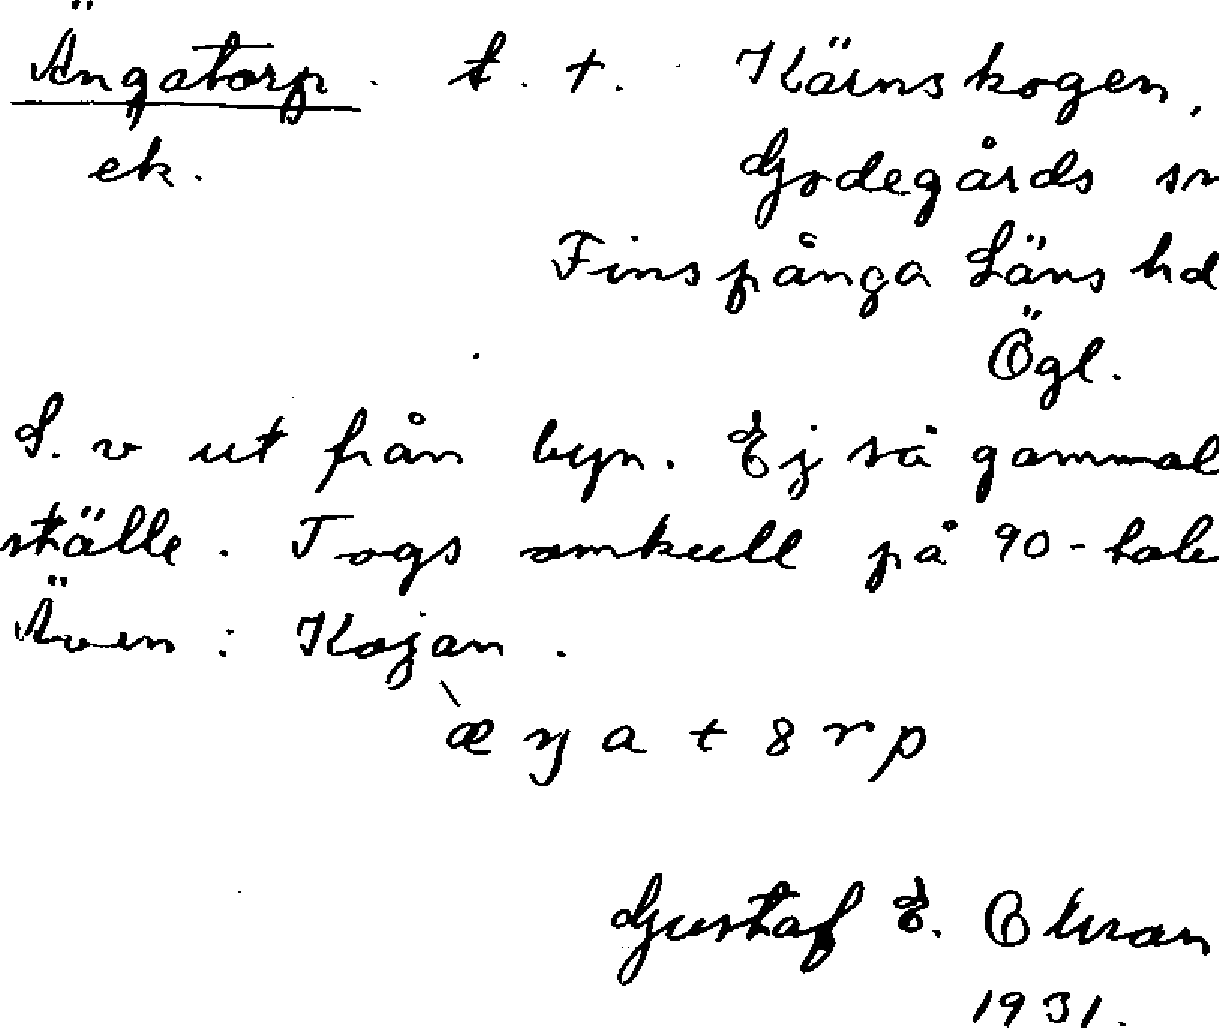 Ängatorp. t. +. Kärnskogen,
ek. Godegårds sn
Finspånga Läns hd
Ögl.
S. v ut från byn. Ej så gammal
ställe. Togs omkull på 90-tale
Även: Kojan.
æŋatȣrp
Gustaf E.
1931.